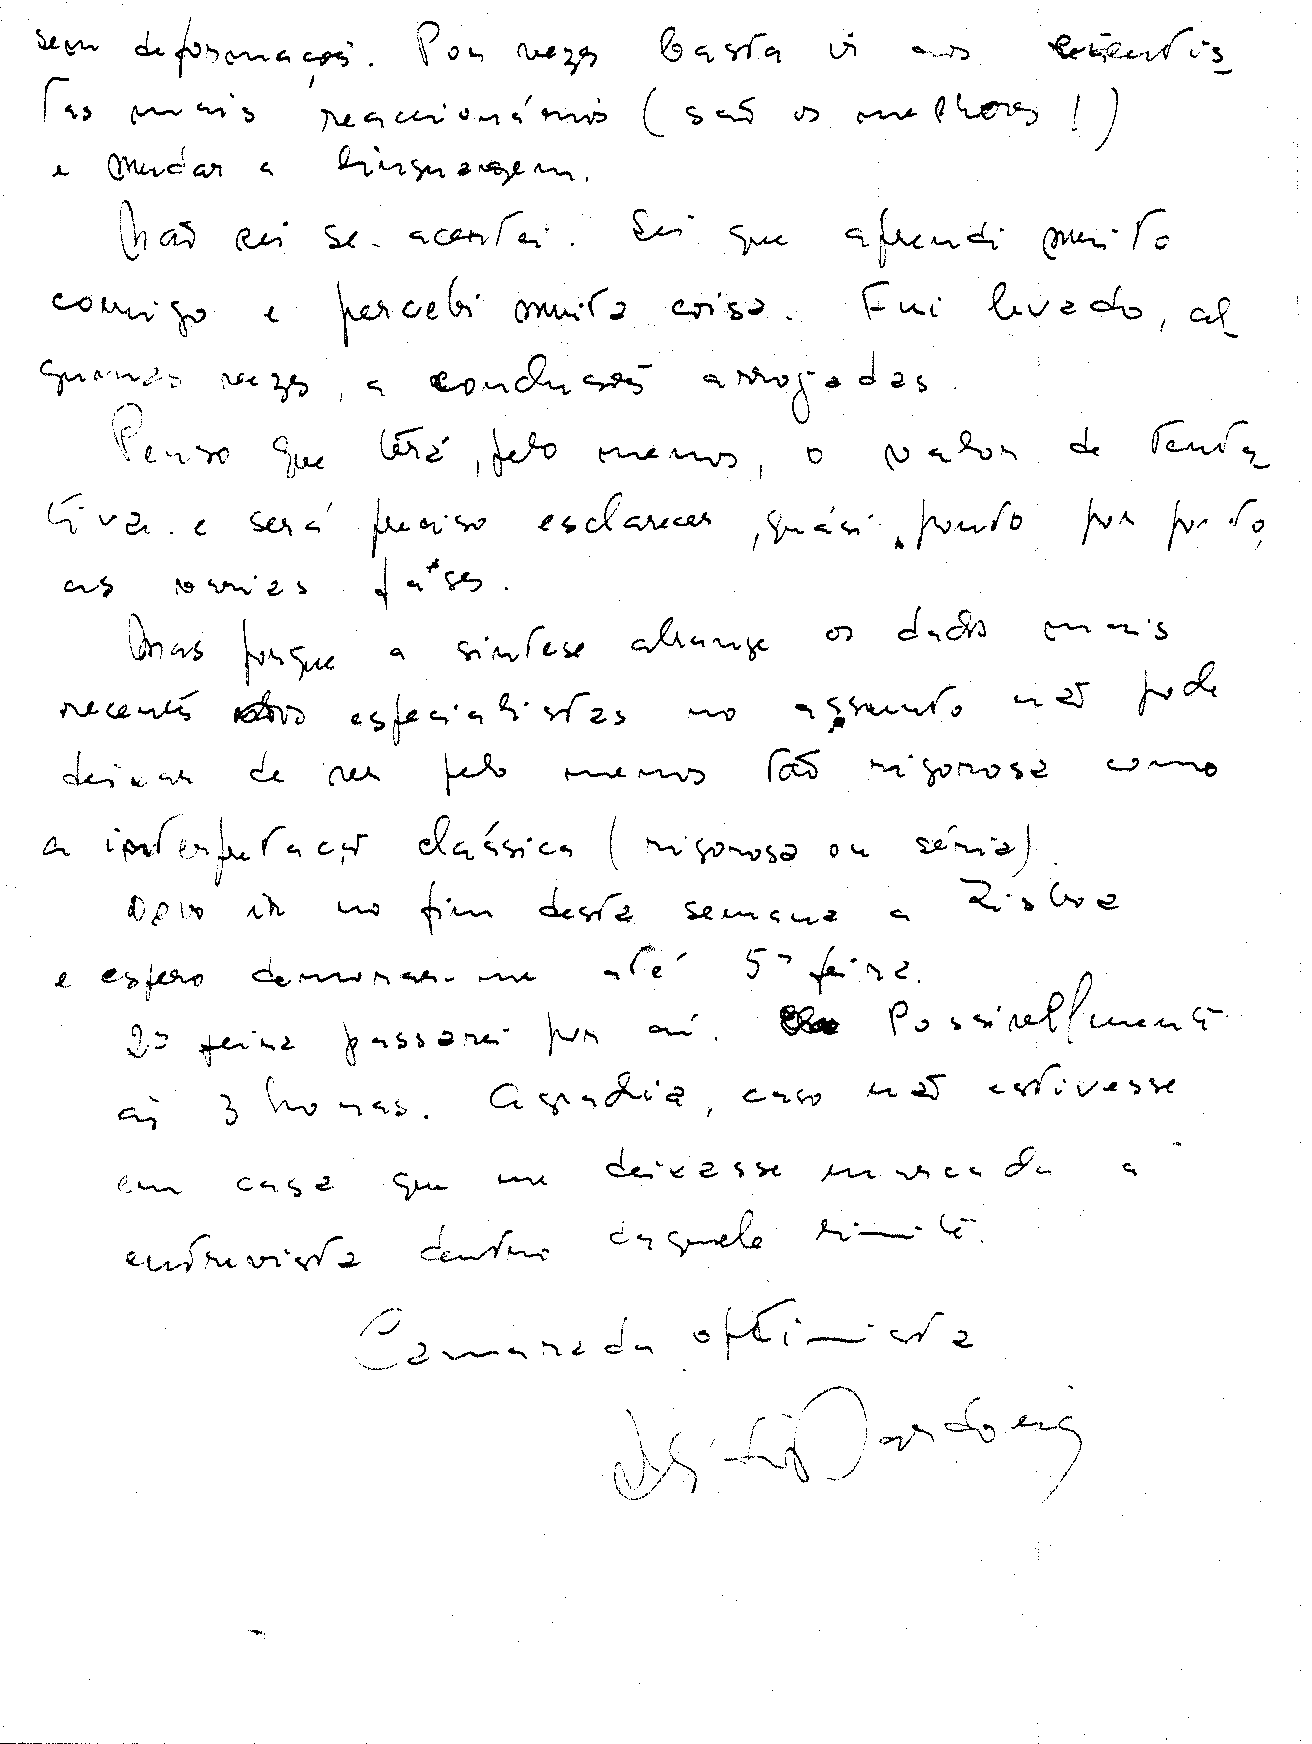 sem deformações. Por vezes basta ir aos cientis_
tas mais reaccionários (são os melhores!)
e mudar a linguagem.
Não sei se acertei. Sei que aprendi muito
comigo e percebi muita coisa. Fui levado, al
gumas vezes, a conclusões arrojadas.
Penso que terá, pelo menos, o valor de tenta
tiva e será preciso esclarecer, quási ponto por ponto,
as várias fases.
Mas porque a síntese abrange os dados mais
recentes dos especialistas no assunto não pode
deixar de ser pelo menos tão rigorosa como
a interpretação clássica (rigorosa ou séria).
Devo ir no fim desta semana a Lisboa
e espero demorar-me até 5ª feira.
2ª feira passarei por aí. Possivelmente
às 3 horas. Agradecia, caso não estivesse
em casa que me deixasse marcada a
entrevista dentro daquele limite.
Camarada optimista